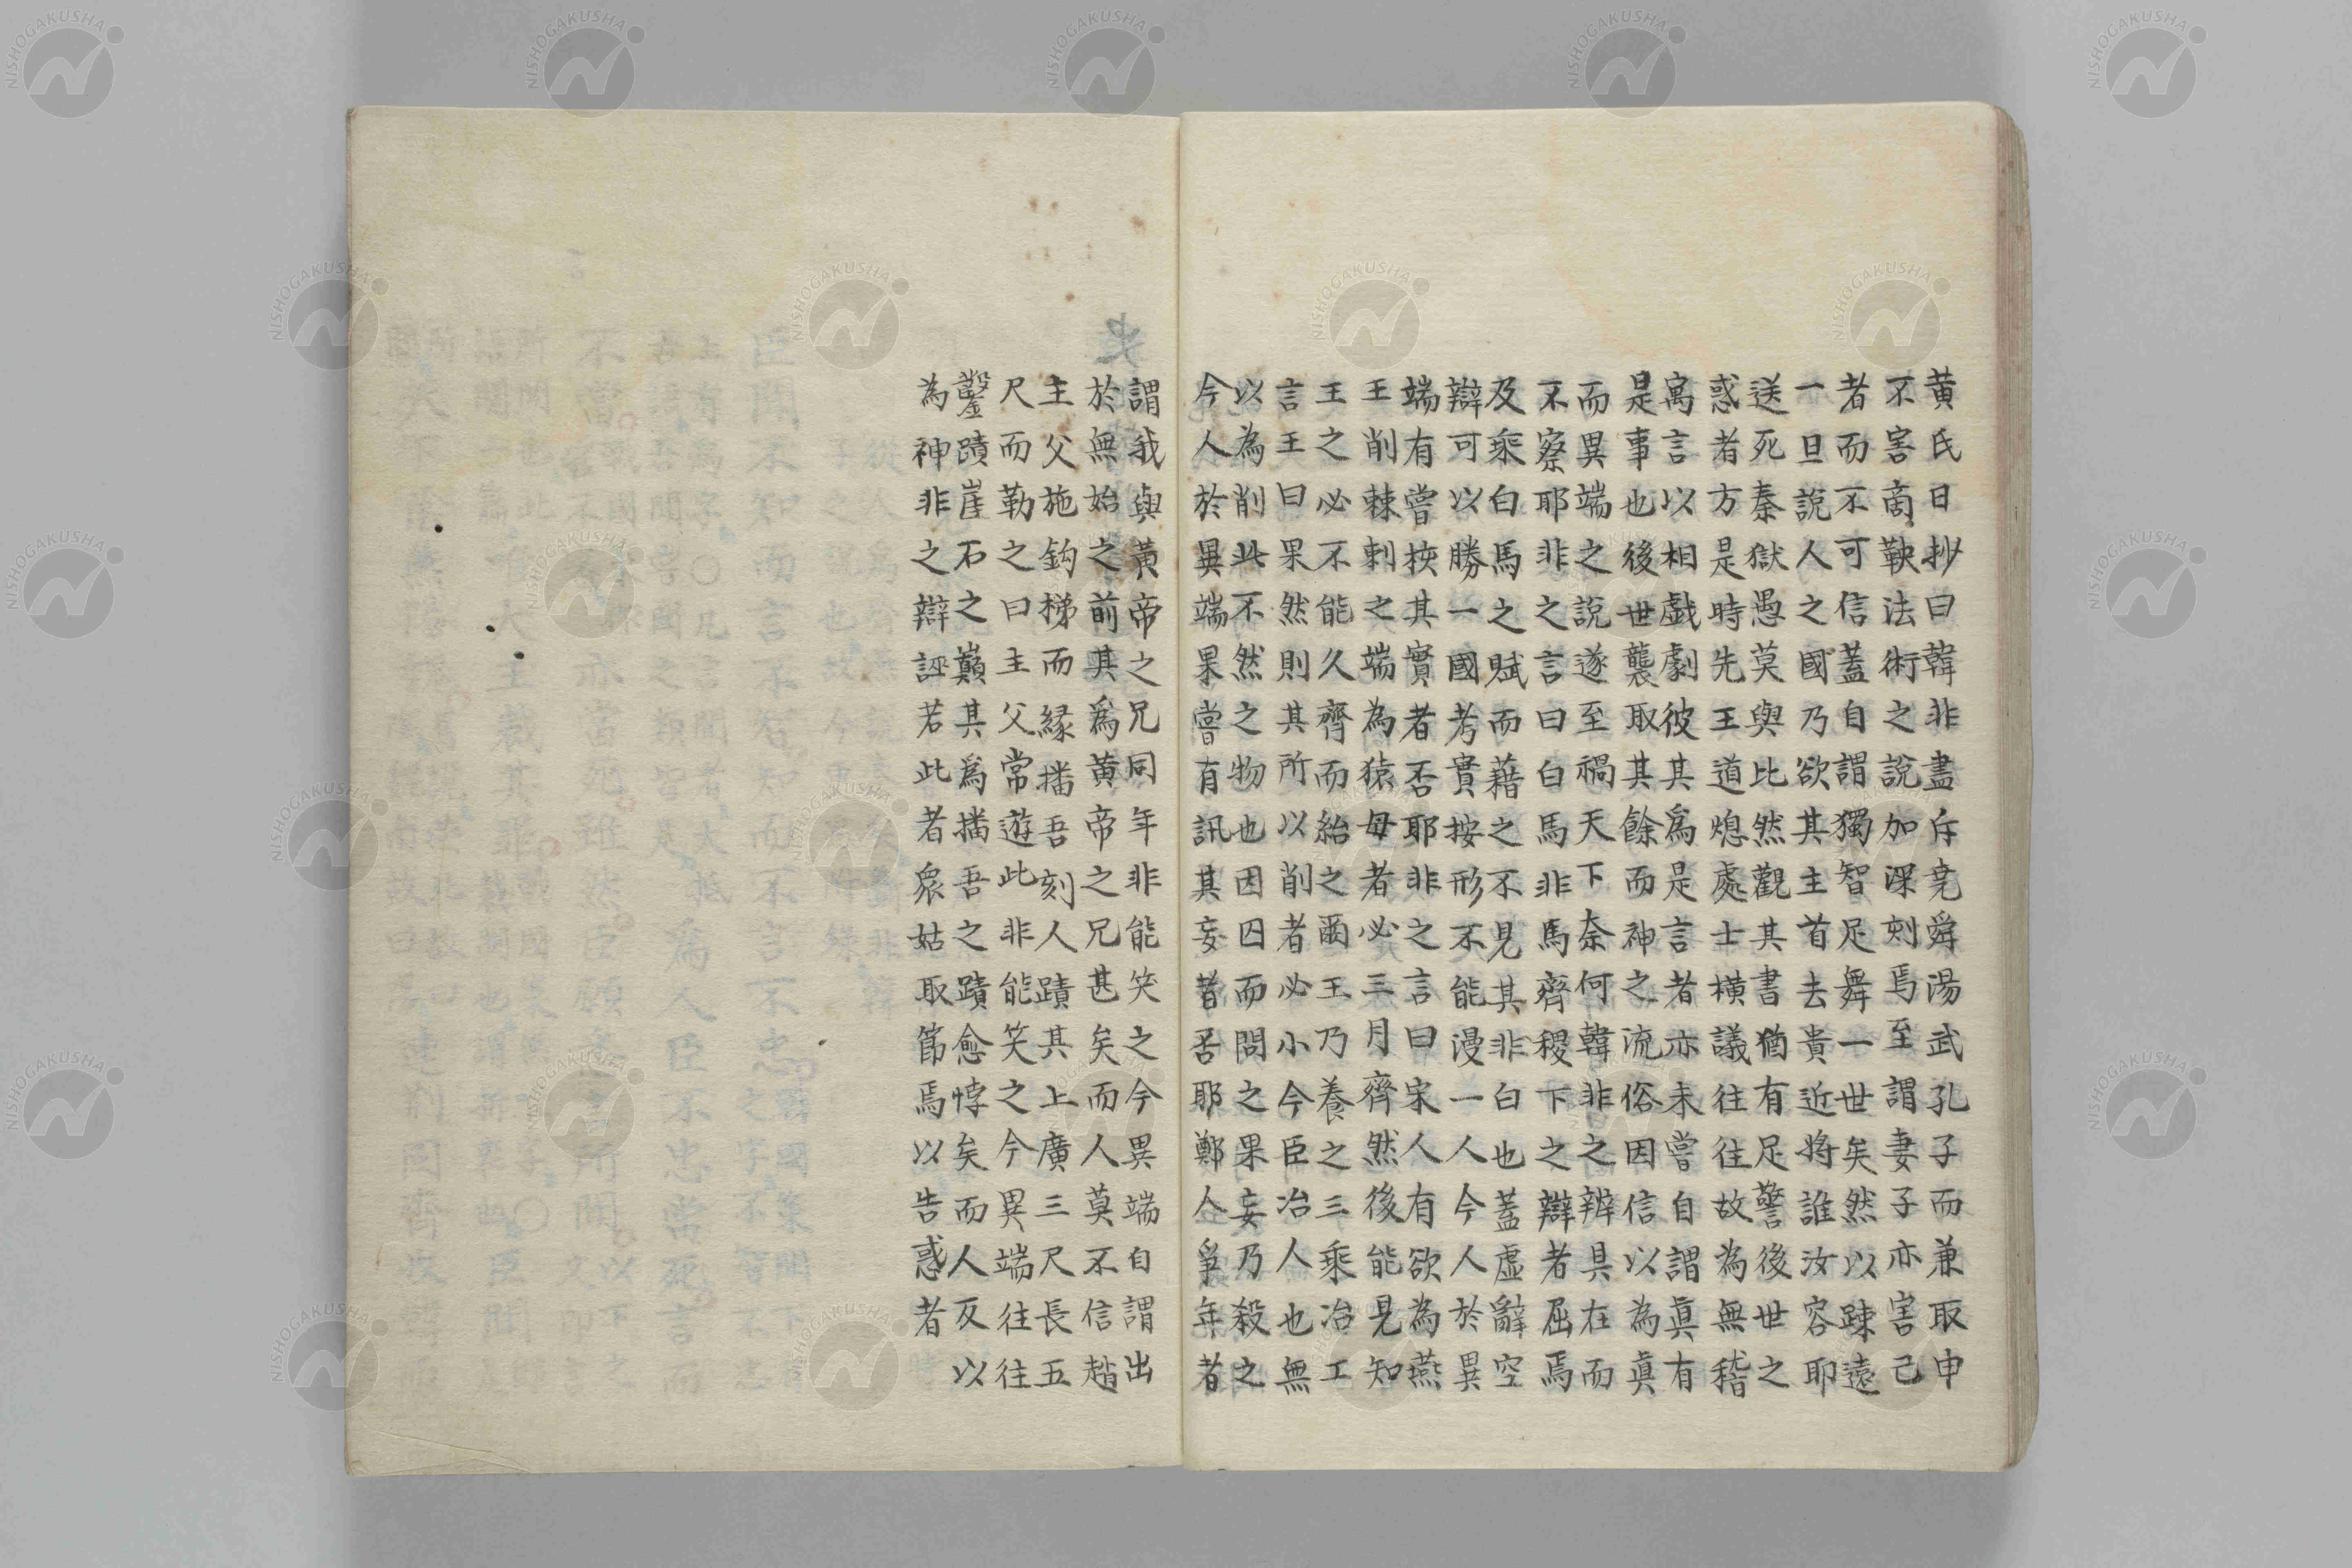 黄氏日抄曰韓非盡斥堯舜湯武孔子而兼取申
不害商鞅法術之說加深刻焉至謂妻子亦害己
者而不可信蓋自謂獨智足舞一世矣然以踈遠
一旦說人之國乃欲其主首去貴近將誰汝容耶
送死秦獄愚莫與比然觀其書猶有足警後世之
惑者方是時先王道熄處士橫議往往故為無稽
寓言以相戲劇彼其爲是言者亦未嘗自謂眞有
是事也後世襲取其餘而神之流俗因信以為眞
而異端之說遂至禍天下奈何韓非之辨具在而
不察耶非之言曰白馬非馬齊稷下之辯者屈焉
及乘白馬之賦而藉之不見其非白也蓋虛辭空
辯可以勝一國考實按形不能漫一人今人於異
端有嘗按其實者否耶非之言曰宋人有欲為燕
王削棘刺之端為猿母者必三月齊然後能見知
王之必不能久齊而紿之爾王乃養之三乘冶工
言王曰果然則其所以削者必小今臣冶人也無
以為削此不然之物也因囚而問之果妄乃殺之
今人於異端果嘗有訊其妄者否耶鄭人爭年者
謂我與黃帝之兄同年非能笑之今異端自謂出
於無始之前其爲黄帝之兄甚矣而人莫不信趙
主父施鈎梯而緣播吾刻人蹟其上廣三尺長五
尺而勒之曰主父常遊此非能笑之今異端往往
鑿蹟崖石之巔其爲播吾之蹟愈悖矣而人反以
為神非之辯誣若此者衆姑取節焉以告惑者